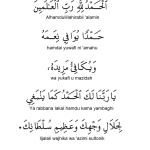 الْحَمْدُ لِلَّهِ رَبِّ الْعَالَمِيْنَ
Alhamdulillahirabbil 'alamin
حَمْدًا يُوَافِي نِعَمَهُ
hamdai yuwafi ni'amahu
وَيُكَافِئُ مَزِيْدَهُ،
wa yukafi'u mazidah
يَارَبَّنَا لَكَ الْحَمْدُ كَمَا يَنْبَغِي
Ya rabbana lakal hamdu kama yambaghi
لِجَلَالِ وَجْهِكَ وَعَظِيْمِ سُلْطَانِكَ،
lijalali wajhika wa 'azimi sultonik